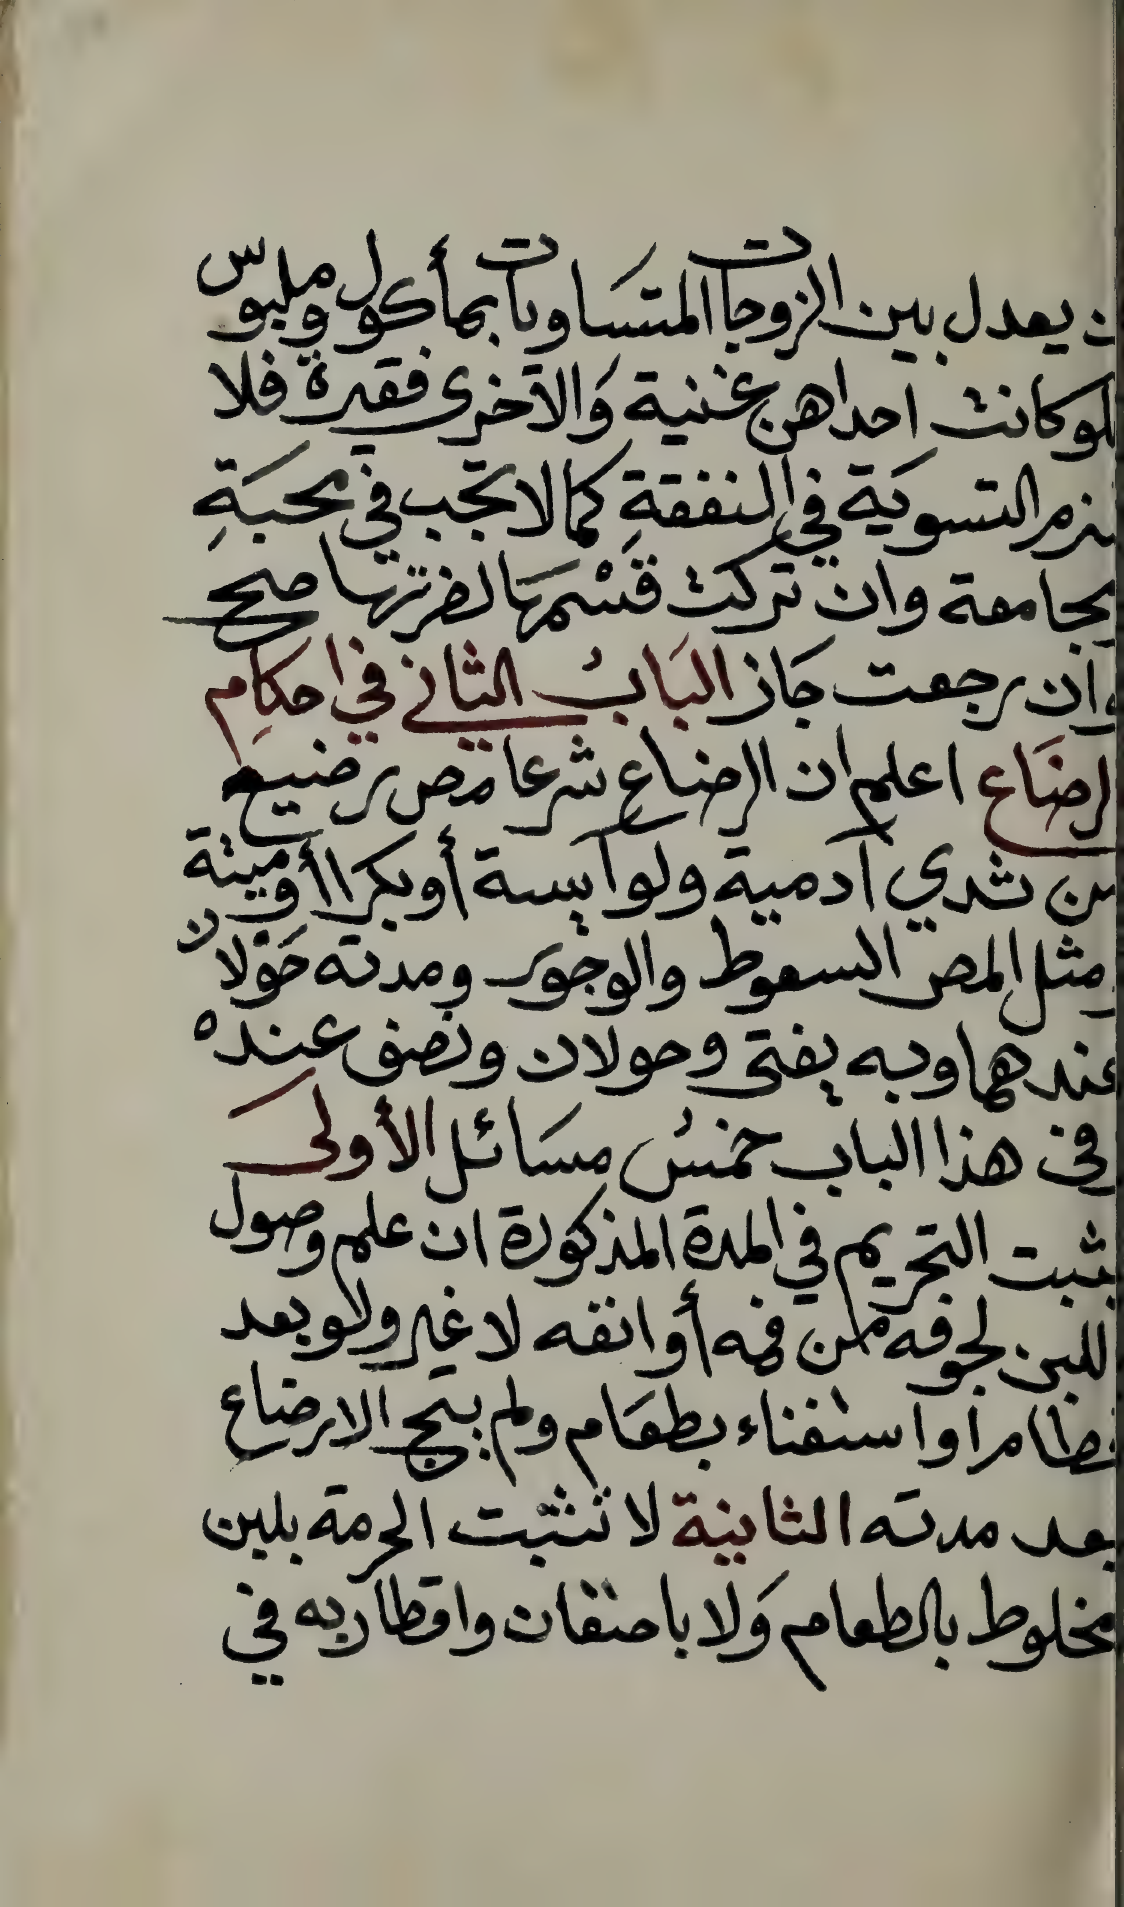 ن يعدل بين الزوجات المتساويات بمأكول وملبوس
لو كانت احداهن غنية وَالآخرى فقيرة فلا
يلزم التسويَة في النفقةِ كما لا تجب في محبَةِ
مجامعة وان تركت قَسْمَهَا لضرتها صح
وان رجعت جَاز البَابُ الثاني في احكام
لرضَاع اعلم ان الرضاع شرعا مص رضيع
من ثدي آدمية ولو آيسة أو بكرا أو ميتة
مثل المص السعوط والوجور ومدته حَوْلان
عندهما وبه يفتى وحولان ونصف عنده
في هذا الباب خمسُ مسَائل الأولى
يثبت التحريم في المدة المذكورة ان علم وصول
للبن لجوفه من فمه أو انفه لا غير ولو بعد
فطام او استغناء بطعَام ولم يبح الارضاع
بعد مدته الثانية لا تثبت الحرمة بلبن
مخلوط بالطعام وَلا باحتقان واقطار به في